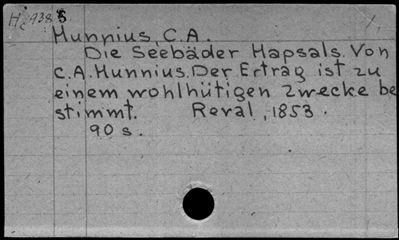 Hunnius, C.A.
Die Seebäder Hapsals. Von
C.A. Hunnius. Der Ertrag ist zu
einem wohlhütigen Zwecke be
stimmt. Reval, 1853.
90 s.